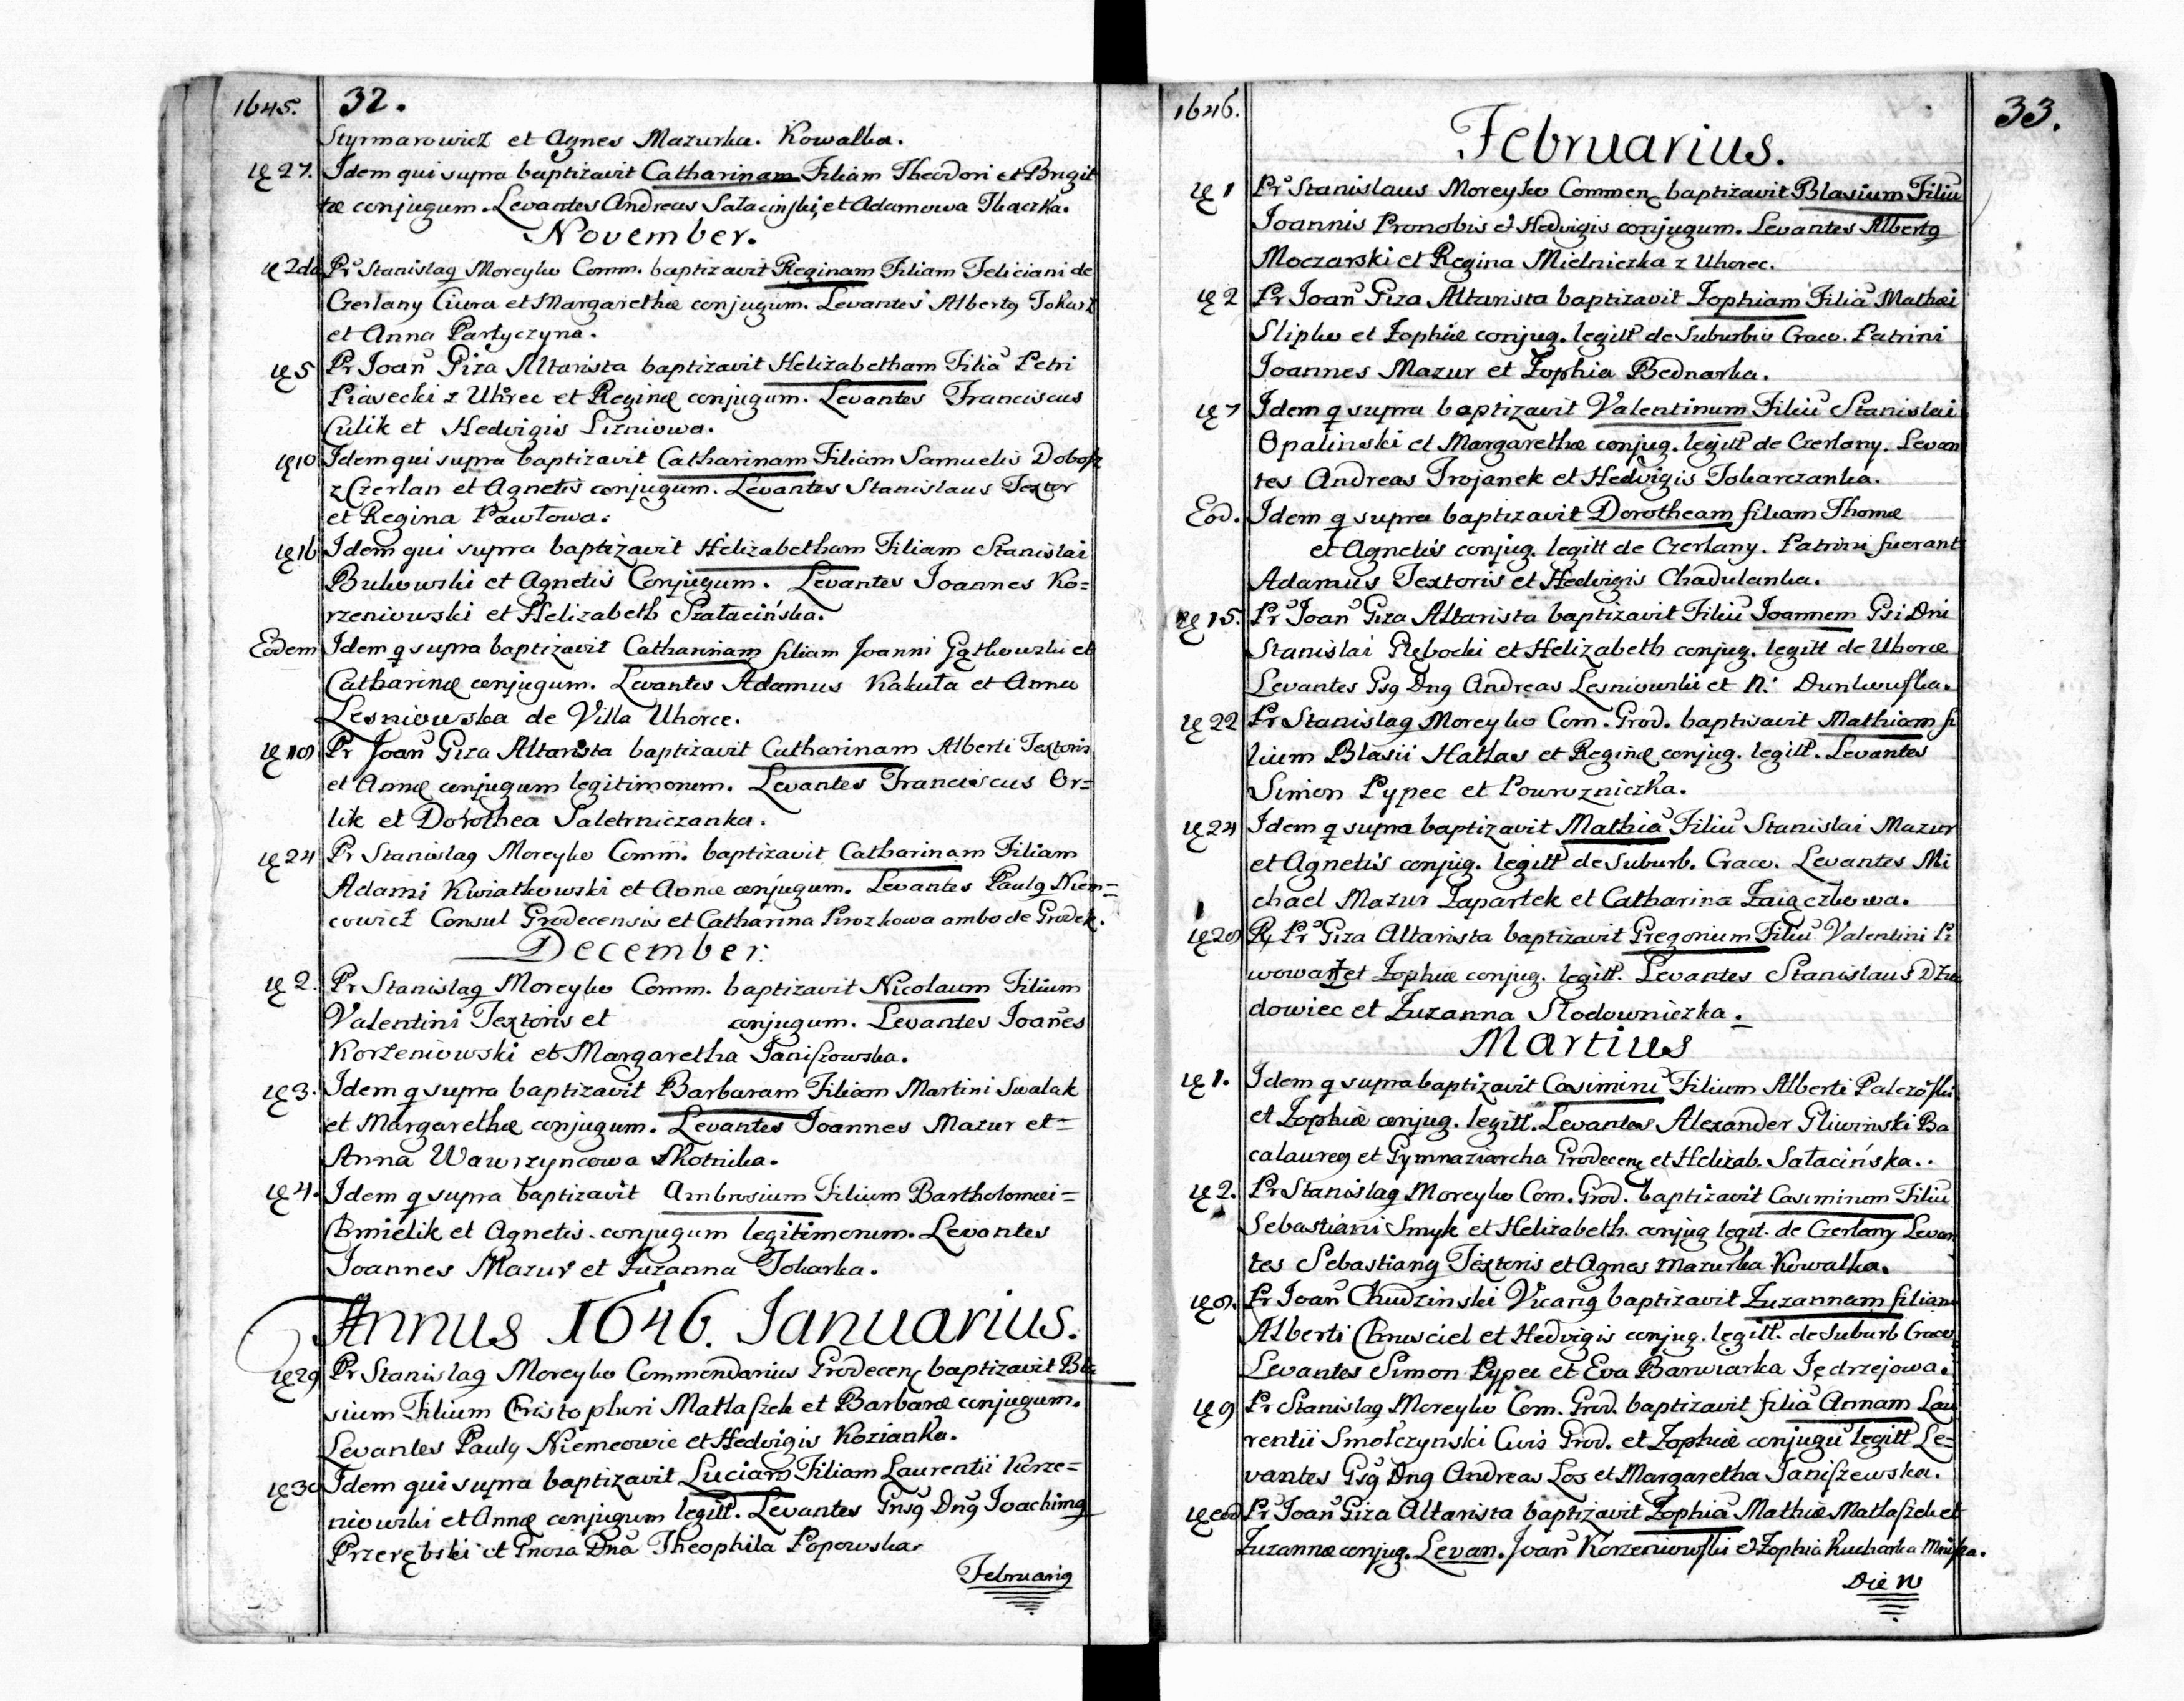 1645. 32.
Styrmarowicz et Agnes Mazurka. Kowalka.
27. Idem qui supra baptizavit Catharinam Filiam Theodori et Brigit
tæ conjugum. Levantes Andreas Satacinski, et Adamowa Tkaczka.
November.
2da Pr Stanislaq Moreyko Comm. baptizavit Reginam Filiam Feliciani de
Czerlany Ciura et Margarethæ conjugum. Levantes Albertq Tokarz
et Anna Partyczyna.
5 Pr Joañ Giza Altarista baptizavit Helizabetham Filiã Petri
Piasecki z Uhrec et Reginæ conjugum. Levantes Franciscus
Culik et Hedvigis Lizniowa.
10 Idem qui supra baptizavit Catharinam Filiam Samuelis Dobosz
z Czerlan et Agnetis conjugum. Levantes Stanislaus Textor
et Regina Pawłowa.
16 Idem qui supra baptizavit Helizabetham Filiam Stanislai
Bukowski et Agnetis Conjugum. Levantes Joannes Ko=
rzeniowski et Helizabeth Szatacińska.
Eodem Idem q supra baptizavit Catharinam filiam Joanni Gątkowski et
Catharinæ conjugum. Levantes Adamus Kakuła et Anna
Lesniowska de Villa Uhorce.
Pr Joañ Giza Altarista baptizavit Catharinam Alberti Textoris
et Annæ conjugum legitimorum. Levantes Franciscus Or=
lik et Dorothea Saletrniczanka.
24 Pr Stanislaq Moreyko Comm. baptizavit Catharinam Filiam
Adami Kwiatkowski et Annæ conjugum. Levantes Paulq Niem=
cowicz Consul Grodecensis et Catharina Pirozkowa ambo de Grodek.
December.
2. Pr Stanislaq Moreyko Comm. baptizavit Nicolaum Filium
Valentini Textoris et conjugum. Levantes Joañes
Korzeniowski et Margaretha Janiszowska.
3. Idem q supra baptizavit Barbaram Filiam Martini Swalak
et Margarethæ conjugum. Levantes Joannes Mazur et=
Anna Wawrzyncowa Skotnika.
4. Idem q supra baptizavit Ambrosium Filium Bartholomæi=
Chmielik et Agnetis conjugum legitimorum. Levantes
Joannes Mazur et Zuzanna Tokarka.
Annus 1646. Januarius.
29 Pr Stanislaq Moreyko Commendarius Grodecen baptizavit Bla
sium Filium Cristophori Matłaszek et Barbaræ conjugum.
Levantes Paulq Niemcowic et Hedvigis Kozianka.
30 Idem qui supra baptizavit Luciam Filiam Laurentii Korze=
niowski et Annæ conjugum legitt. Levantes Gnsq Dnq Joachimq
Przerębski et Gnoza Dna Theophila Popowska.
Februariq
1646. 33.
Februarius.
1 Pr Stanislaus Moreyko Commen baptizavit Blasium Filiũ
Joannis Pronobis et Hedvigis conjugum. Levantes Albertq
Moczarski et Regina Mielniczka z Uhorec.
2 Pr Joañ Giza Altarista baptizavit Zophiam Filiã Mathæi
Slipko et Zophiæ conjug. legitt de Suburbio Craco. Patrini
Joannes Mazur et Zophia Bednarka.
7 Idem q supra baptizavit Valentinum Filiũ Stanislai
Opalinski et Margarethæ conjug. legitt de Czerlany. Levan
tes Andreas Trojanek et Hedvigis Tokarczanka.
Eod. Idem q supra baptizavit Dorotheam filiam Thomæ
et Agnetis conjug. legitt de Czerlany. Patrini fuerant
Adamus Textoris et Hedvigis Chadulanka.
15. Pr Joañ Giza Altarista baptizavit Filiũ Joannem Gsi Dni
Stanislai Głębocki et Helizabeth conjug. legitt de Uhorce
Levantes Gsq Dnq Andreas Lesniowski et N.
22 Pr Stanislaq Moreyko Com. Grod. baptisavit Mathiam fi
lium Blasii Hałłas et Reginæ conjug. legitt. Levantes
Simon Pypec et Powrozniczka.
24 Idem q supra baptizavit Mathiã Filiũ Stanislai Mazur
et Agnetis conjug. legitt de Suburb. Craco. Levantes Mi
chael Mazur Zapartek et Catharina Zaiączkowa.
Pr Giza Altarista baptizavit Gregorium Filiũ Valentini Pi
wowarz et Zophiæ conjug. legitt. Levantes Stanislaus Dzia
dowiec et Zuzanna Słodowniczka.
Martius
1. Idem q supra baptizavit Casimirũ Filium Alberti
et Zophiæ conjug. legitt. Levantes Alexander Gliwinski Ba
calaureq et Gymnaziarcha Grodecen et Helizab. Satacińska.
2. Pr Stanislaq Moreyko Com. Grod. baptizavit Casimirum Filiũ
Sebastiani Smyk et Helizabeth. conjug legit. de Czerlany Levan
tes Sebastianq Textoris et Agnes Mazurka Kowalka.
8. Pr Joañ Chudzinski Vicariq baptizavit Zuzannam filiam
Alberti Chrusciel et Hedvigis conjug. legitt. de Suburb Craco
Levantes Simon Pypec et Eva Barwiarka Jędrzejowa.
9 Pr Stanislaq Moreyko Com. Grod. baptizavit filiã Annam Lau
rentii Smołczynski Civis Grod. et Zophiæ conjugũ legitt Le=
vantes Gsq Dnq Andreas Los et Margaretha Janiszewska.
eod Pr Joañ Giza Altarista baptizavit Zophiã Mathiæ Matłaszek et
Zuzannæ conjug. Levan. Joañ Korzeniowski et Zophia Kucharka
Die